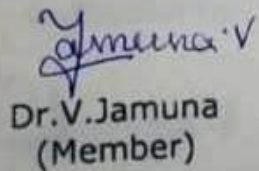 Jamuna.V
Dr.V.Jamuna
(Member)